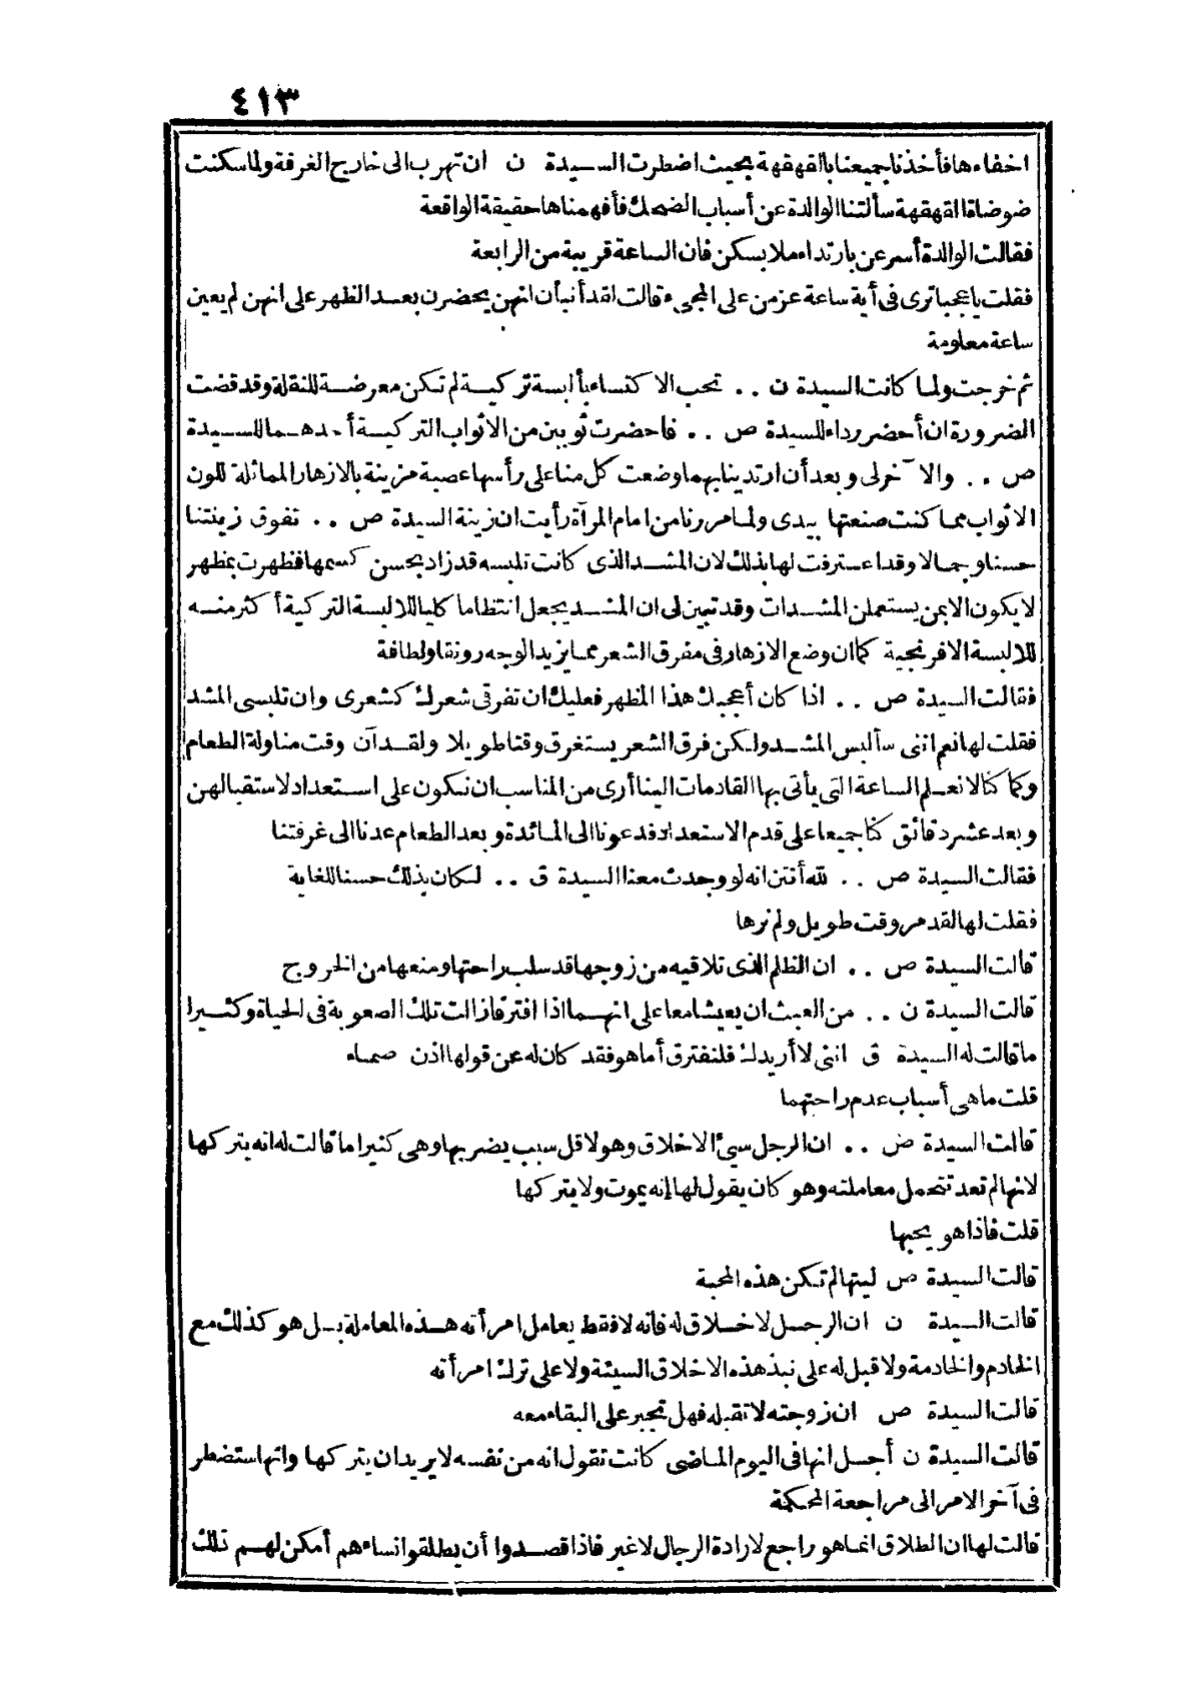 ٤١٣
اخفاءها فأخذنا جميعنا بالقهقهة بحيث اضطرت السيدة ن ان تهرب الى خارج الغرفة ولما سكنت
ضوضاء القهقهة سألتنا الوالدة عن أسباب الضحك فأفهمناها حقيقة الواقعة
فقالت الوالدة أسرعن بارتداء ملابسكن فان الساعة قريبة من الرابعة
فقلت ياعجبا ترى فى أية ساعة عزمن على المجىء قالت لقد أنبأن انهن يحضرن بعد الظهر على انهن لم يعين
ساعة معلومة
ثم خرجت ولما كانت السيدة ن .. تحب الاكتساء بألبسة تركية لم تكن معرضة للنقلة وقد قضت
الضرورة ان أحضر رداء للسيدة ص .. فاحضرت ثوبين من الاثواب التركية أحدهما للسيدة
ص .. والآخر لى وبعد أن ارتدينا بهما وضعت كل منا على رأسها عصبة مزينة بالازهار المماثلة للون
الاثواب مما كنت صنعتها بيدى ولما مررنا من امام المرآة رأيت ان زينة السيدة ص .. تفوق زينتنا
حسنا وجمالا وقد اعترفت لها بذلك لان المشد الذى كانت تلبسه قد زاد بحسن كسمها فظهرت بمظهر
لا يكون الا بمن يستعملن المشدات وقد تبين لى ان المشد يجعل انتظاما كليا للالبسة التركية أكثر منه
للالبسة الافرنجية كما ان وضع الازهار فى مفرق الشعر مما يزيد الوجه رونقا ولطافة
فقالت السيدة ص .. اذا كان أعجبك هذا المظهر فعليك ان تفرقى شعرك كشعرى وان تلبسى المشد
فقلت لها نعم اننى سألبس المشد ولكن فرق الشعر يستغرق وقتا طويلا ولقد آن وقت مناولة الطعام
وكما كنا لا نعلم الساعة التى يأتى بها القادمات الينا أرى من المناسب ان نكون على استعداد لاستقبالهن
وبعد عشر دقائق كنا جميعا على قدم الاستعداد فدعونا الى المائدة وبعد الطعام عدنا الى غرفتنا
فقالت السيدة ص .. لله أنتن انه لو وجدت معنا السيدة ق .. لكان بذلك حسنا للغاية
فقلت لها لقد مر وقت طويل ولم نرها
قالت السيدة ص .. ان الظلم الذى تلاقيه من زوجها قد سلب راحتها ومنعها من الخروج
قالت السيدة ن .. من العبث ان يعيشا معا على انهما اذا افترقا زالت تلك الصعوبة فى الحياة وكثيرا
ما قالت له السيدة ق اننى لا أريدك فلنفترق أما هو فقد كان له عن قولها اذن صماء
قلت ما هى أسباب عدم راحتهما
قالت السيدة ض .. ان الرجل سيئ الاخلاق وهو لاقل سبب يضربها وهى كثيرا ما قالت له انه يتركها
لانها لم تعد تتحمل معاملته وهو كان يقول لها إنه يموت ولا يتركها
قلت فاذا هو يحبها
قالت السيدة ص ليتها لم تكن هذه المحبة
قالت السيدة ن ان الرجل لا خلاق له فانه لا فقط يعامل امرأته هذه المعاملة بل هو كذلك مع
الخادم والخادمة ولا قبل له على نبذ هذه الاخلاق السيئة ولا على ترك امرأته
قالت السيدة ص ان زوجته لا تقبله فهل تجبر على البقاء معه
قالت السيدة ن أجل انها فى اليوم الماضى كانت تقول انه من نفسه لا يريد ان يتركها وانها ستضطر
فى آخر الامر الى مراجعة المحكمة
قالت لها ان الطلاق انما هو راجع لارادة الرجال لا غير فاذا قصدوا أن يطلقوا نساءهم أمكن لهم تلك